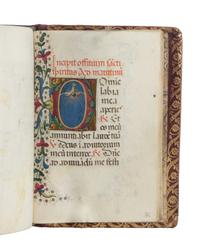 Incipit offitium sācti
spiritus Ad matutinū
Domine
labia
mea
aperies
Et os meū
annuntiabit laudē tuā
Deus i adiutorium
meū intende
Dñe ad adiuvādū me festi